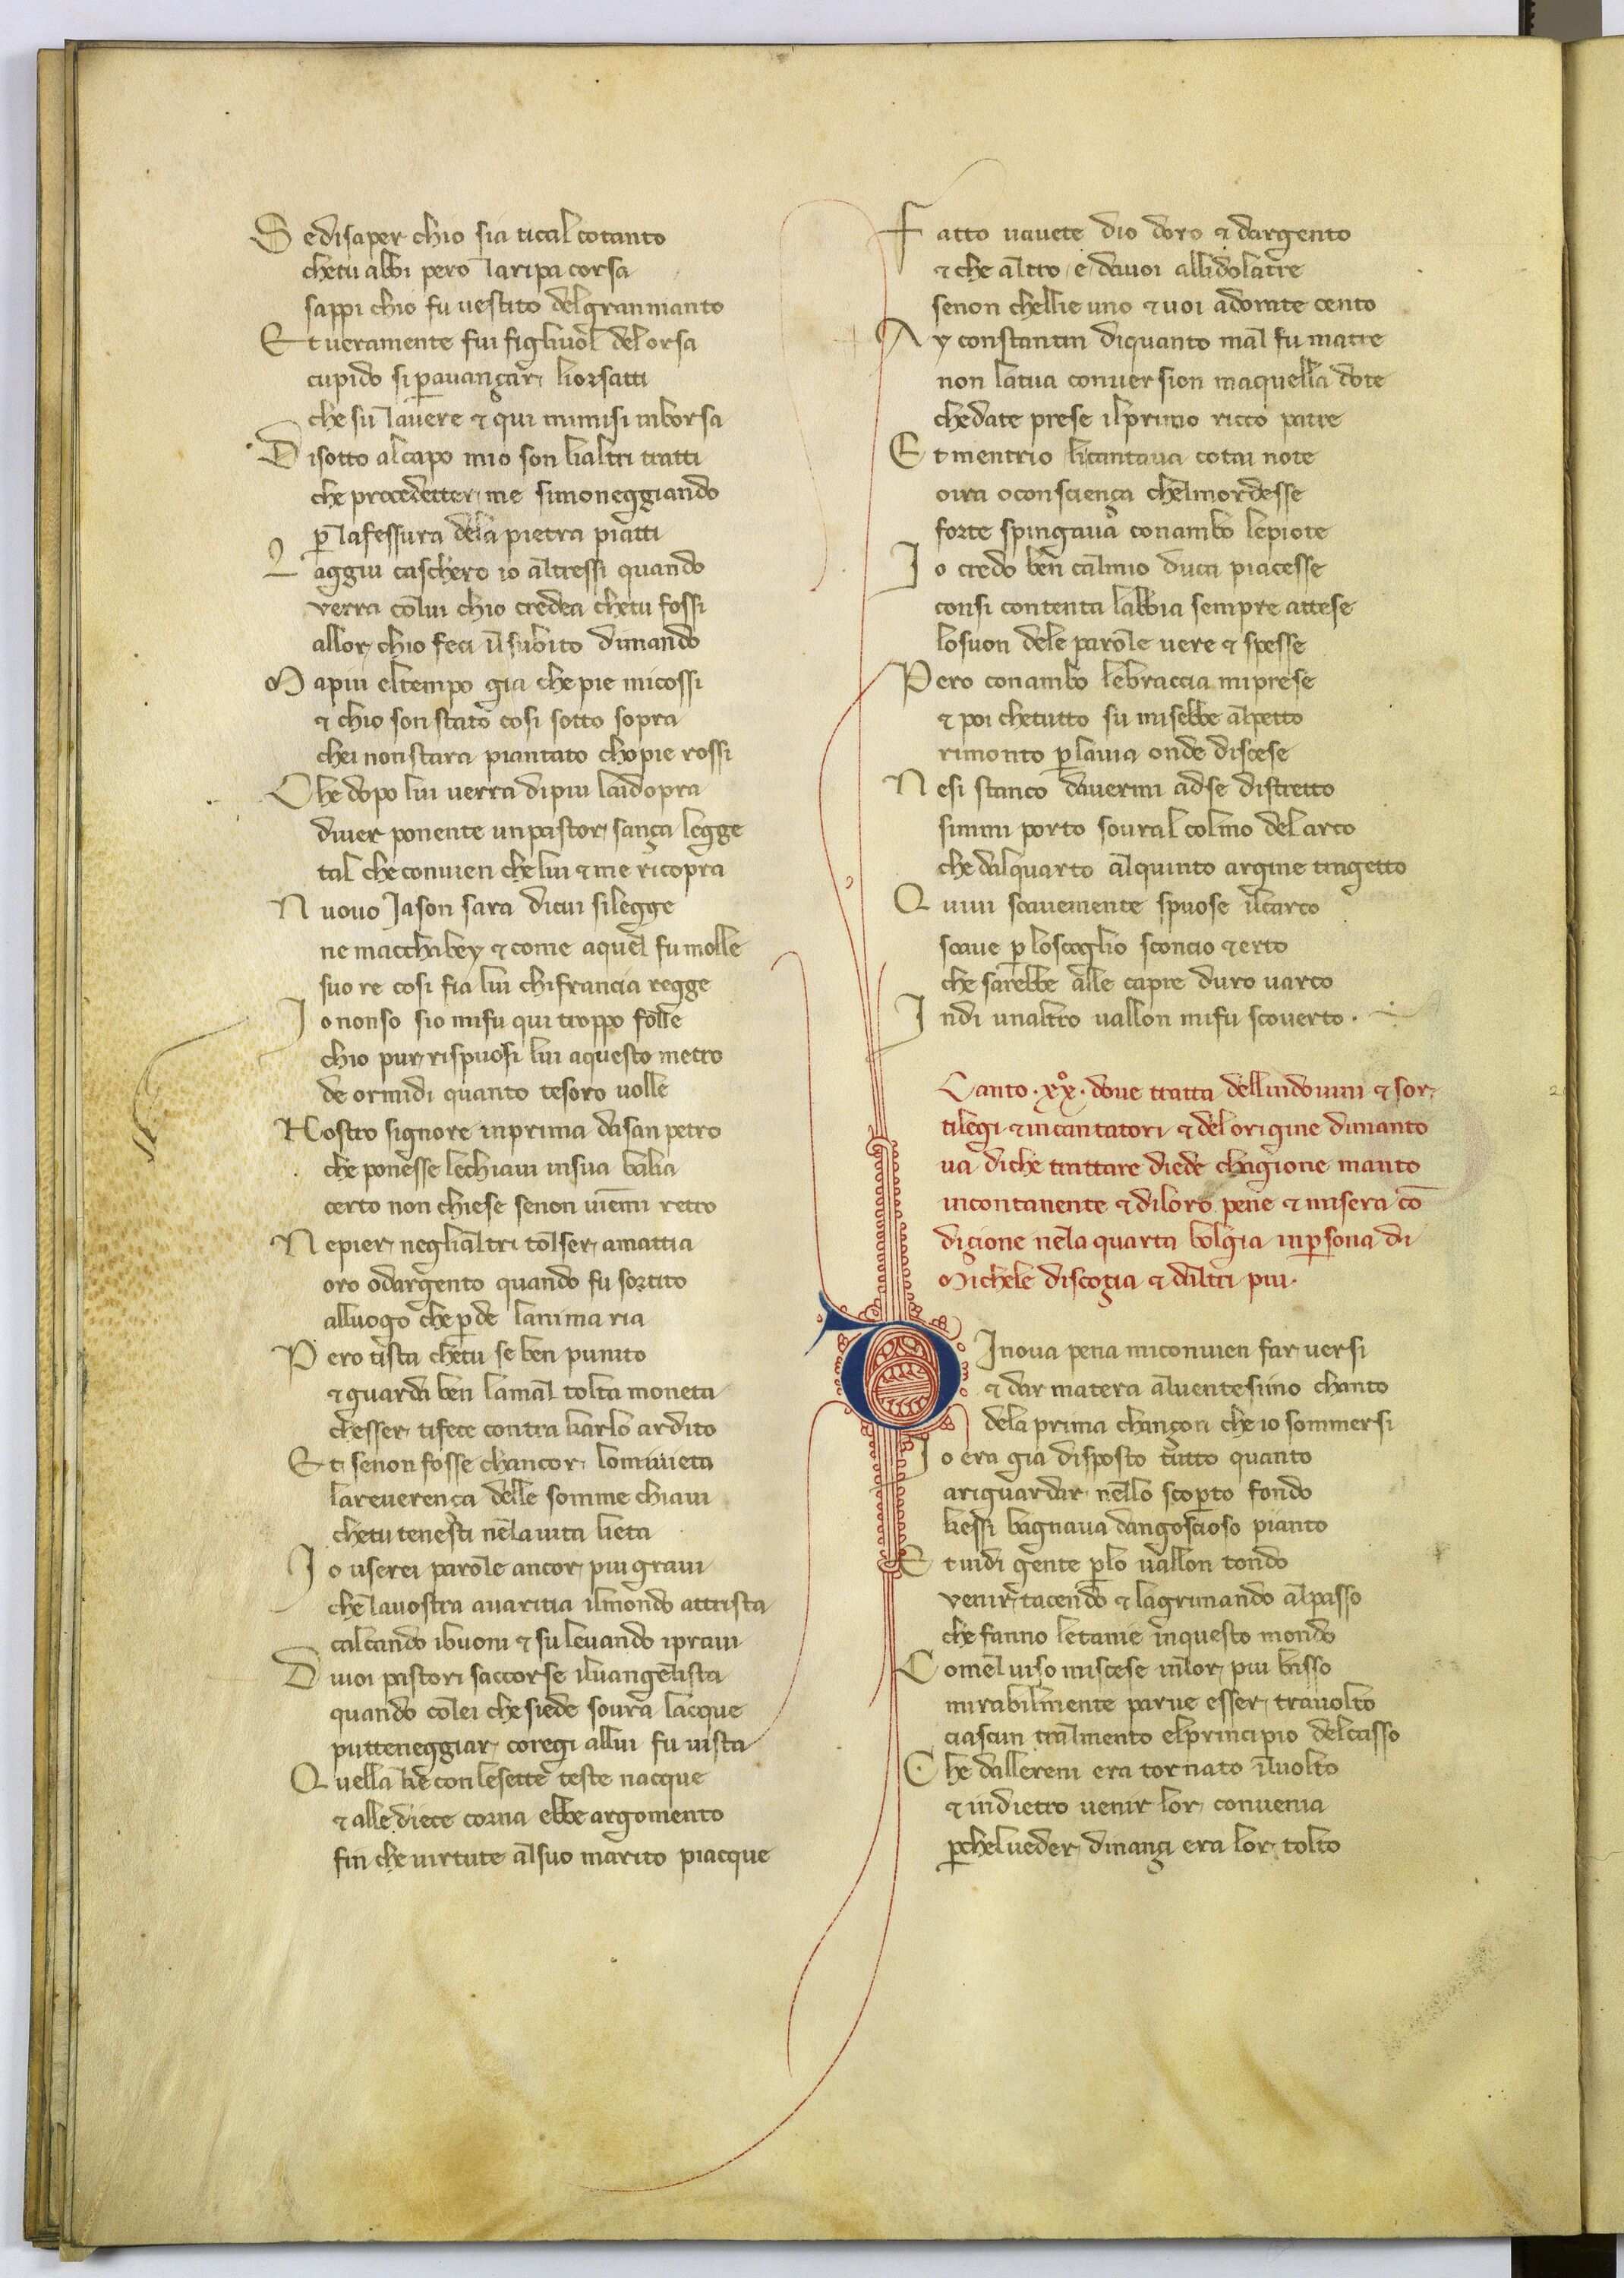 Se disaper chio sia tical cotanto
chetu abbi pero laripa corsa
sappi chio fu vestito delgran manto
Et ueramente fui figliuol del orsa
cupido si p auançar liorsatti
che su lauere & qui mimisi inborsa
Disotto alcapo mio son lialtri tratti
che procedetter me simoneggiando
p lafessura dela pietra piatti
Laggiu caschero io altressi quando
verra colui chio credea chetu fossi
allor chio feci il subito dimando
Ma piu eltempo gia che pie micossi
& chio son stato cosi sotto sopra
chei non stara piantato cho pie rossi
Che dopo lui uerra dipiu laidopra
diuer ponente un pastor sança legge
tal che conuien che lui & me ricopra
Nuouo Jason sara dicui silegge
ne macchabey & come aquel fu molle
suo re cosi fia lui chi francia regge
Io non so sio mifu qui troppo folle
chio pur rispuosi lui aquesto metro
de or midi quanto tesoro uolle
Nostro signore inprima da san petro
che ponesse lechiaui insua balia
certo non chiese senon uiemmi retro
Ne pier ne gli altri tolser amattia
oro odargento quando fu sortito
alluogo che pde lanima ria
Pero tista chetu se ben punito
& guarda ben lamal tolta moneta
chesser tifece contra karlo ardito
Et senon fosse chancor lomiuieta
lareuerença delle somme chiaui
chetu tenesti nela uita lieta
Io userei parole ancor piu graui
che lauostra auaritia ilmondo attrista
calcando ibuoni & su leuando ipraui
Di uoi pastori saccorse iluangelista
quando colei che siede soura lacque
putteneggiar coregi allui fu uista
Quella che con lesette teste nacque
& alle diece corna ebbe argomento
fin che uirtute alsuo marito piacque
Fatto uauete dio doro & dargento
& che altro e dauoi allidolatre
senon chellie uno & uoi adorate cento
Ay constantin diquanto mal fu matre
non latua conuersion maquella dote
che date prese ilprimo ricco patre
Et mentrio licantaua cotai note
o ira o consciença chelmordesse
forte spingaua conambo lepiote
Io credo ben calmio duca piacesse
consi contenta labbia sempre attese
losuon dele parole uere & spesse
Pero conambo lebraccia miprese
& poi chetutto su misebbe alpetto
rimonto p lauia onde discese
Nesi stanco dauermi adse distretto
simmi porto soural colmo del arco
che dalquarto alquinto argine tragetto
Quiui soauemente spuose ilcarco
soaue p loscoglio sconcio & erto
che sarebbe alle capre duro uarco
Indi unaltro uallon mifu scouerto
Canto . xx°. doue tratta dellindouini & sor
tilegi & incantatori & del origine dimanto
ua diche trattare diede chagione manto
incontanente & diloro pene & misera cō
diçione nela quarta bolgia inpsona di
Michele discotia & daltri piu.
DInoua pena miconuien far uersi
& dar matera aluentesimo chanto
dela prima chançon che io sommersi
Io era gia disposto tutto quanto
ariguardar nello scopto fondo
kessi bagnaua dangoscioso pianto
Et uidi gente plo uallon tondo
venir tacendo & lagrimando alpasso
che fanno letanie inquesto mondo
Comel uiso miscese inlor piu basso
mirabilmente parue esser trauolto
ciascun tralmento elprincipio delcasso
Che dallereni era tornato iluolto
& indietro uenir lor conuenia
pchelueder dinançi era lor tolto